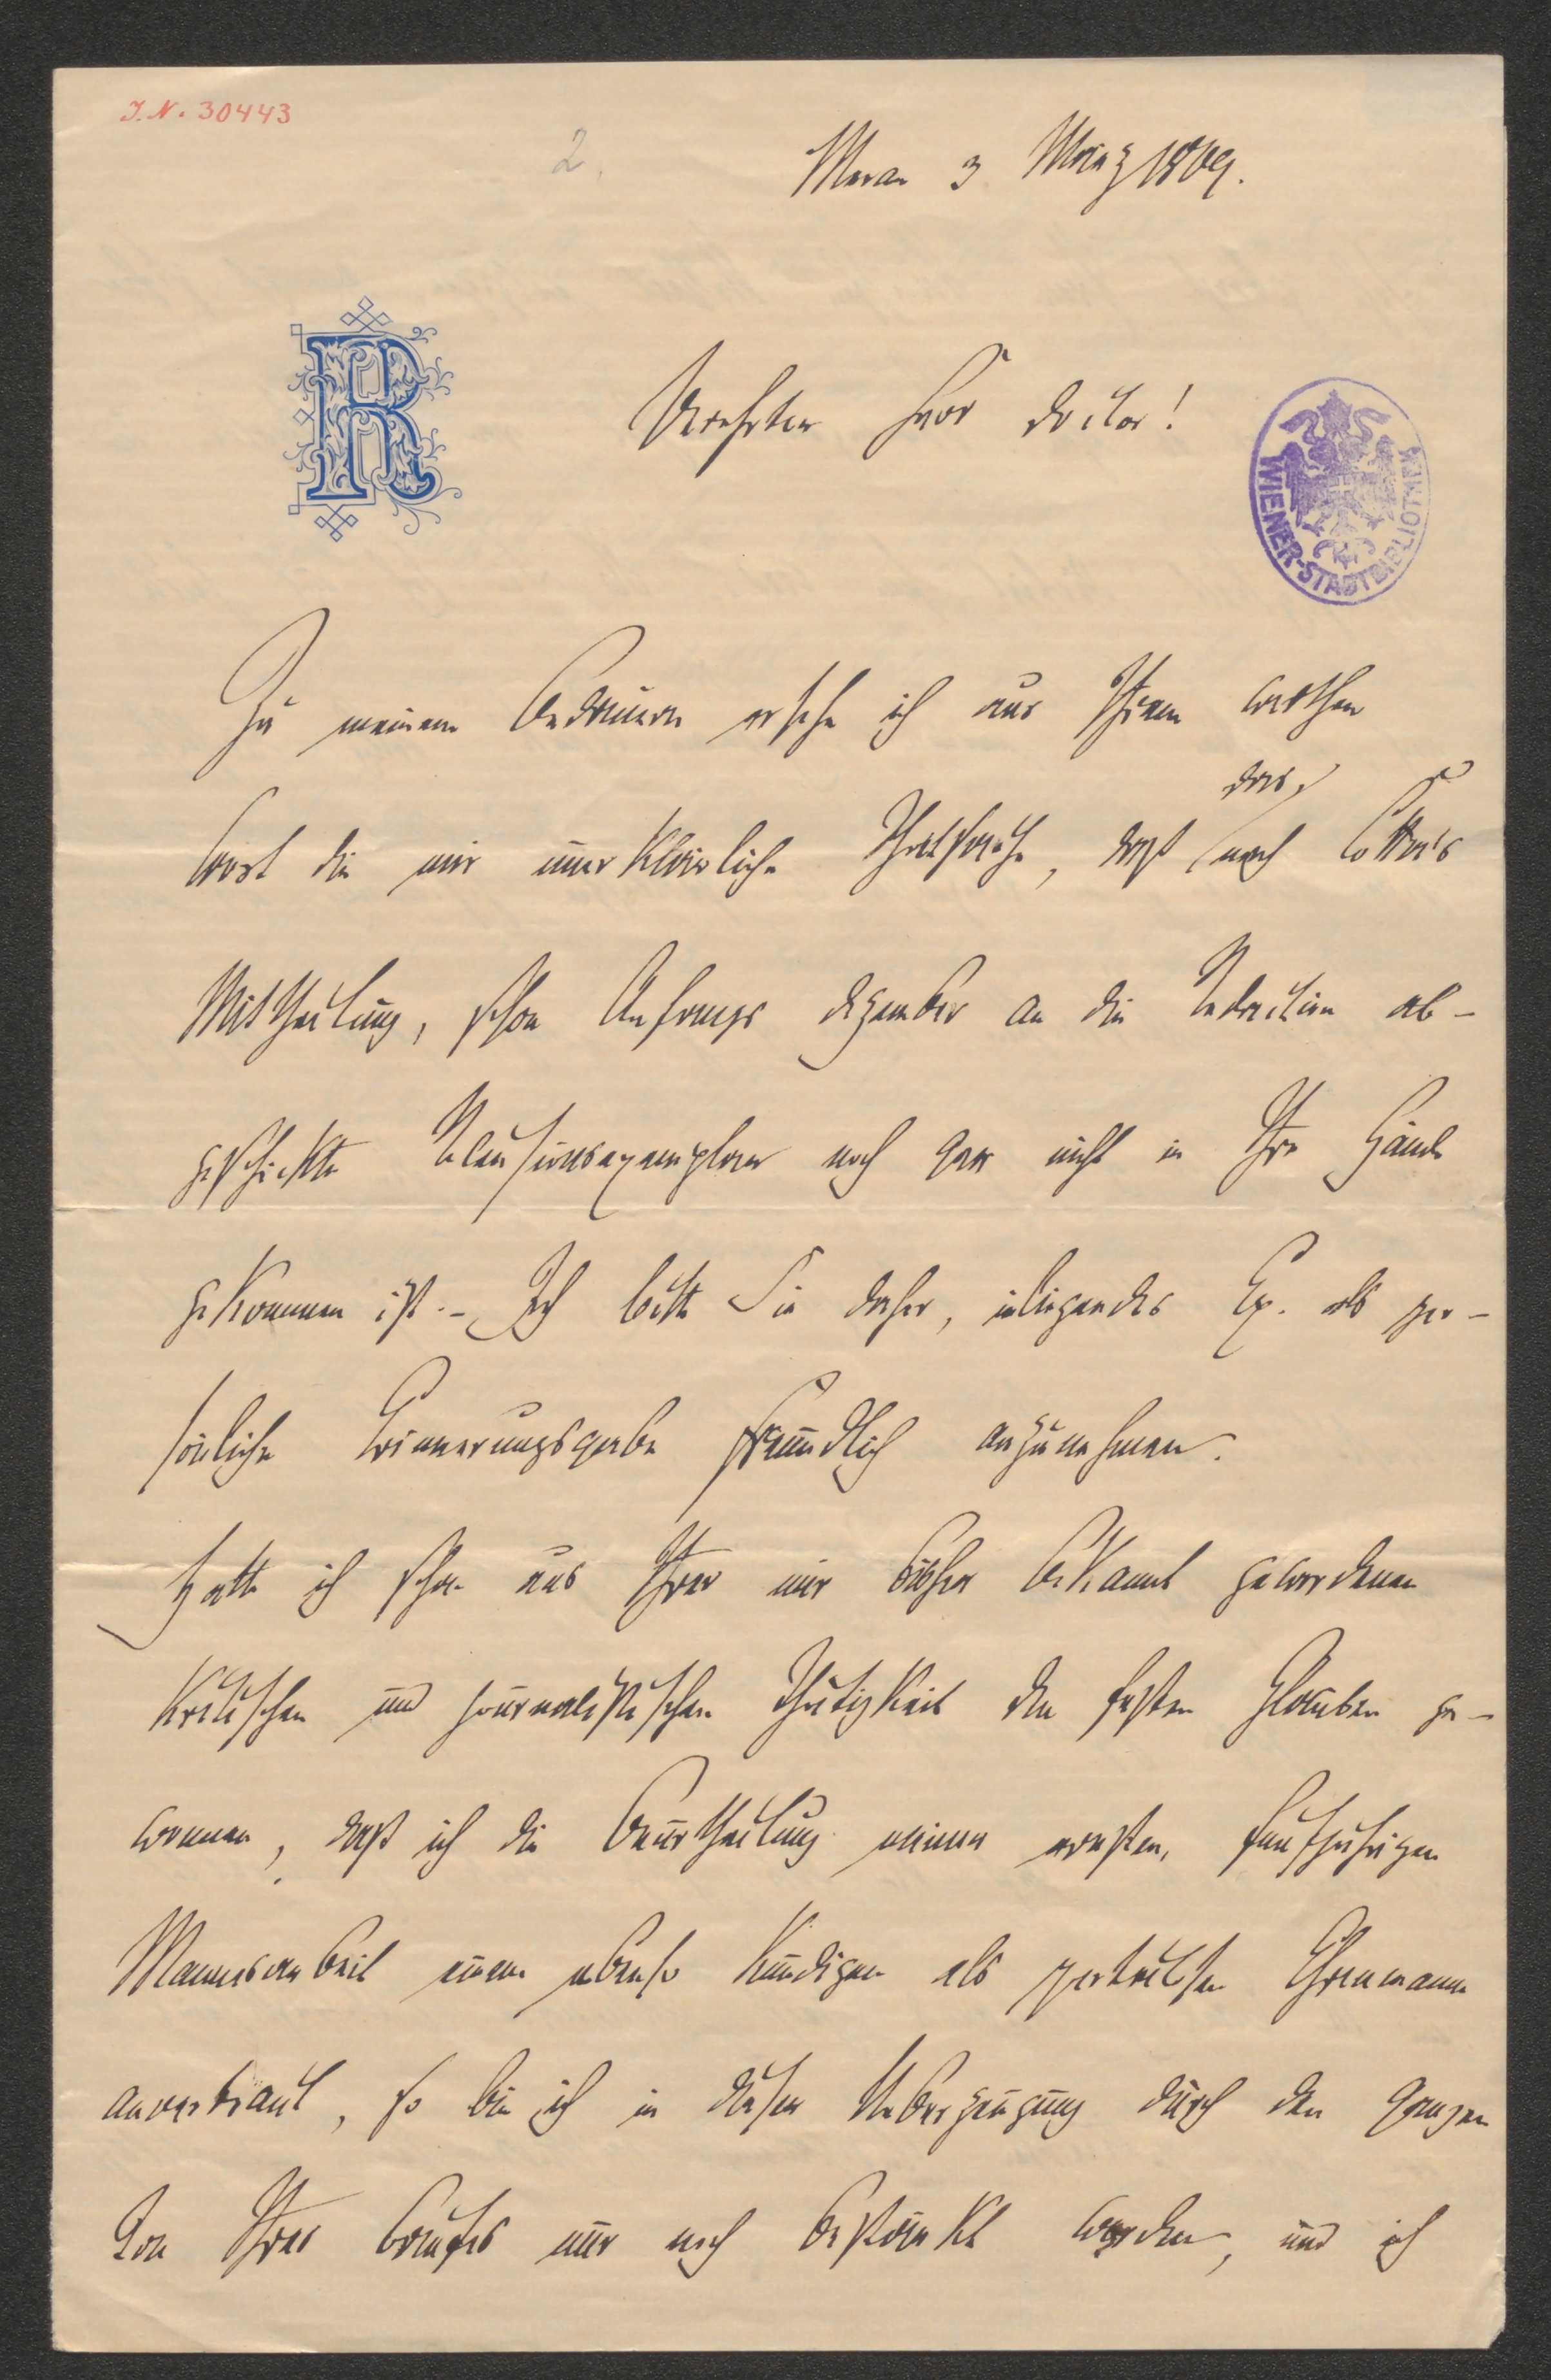 J. N. 30443
2.
Meran 3 März 1869.
R
Verehrter Herr Doctor!
WIENER-STADTBIBLIOTHEK
Zu meinem Bedauern ersehe ich aus Ihrem werthen
das,
Wort die mir unerklärliche Thatsache, daß nach Cotta's
Mittheilung, schon Anfangs Dezember an die Redaction ab-
geschickte Recensionsexemplar noch gar nicht in Ihre Hände
gekommen ist. – Ich bitte Sie daher, inliegendes Ex. als per-
sönliche Erinnerungsgabe freundlich anzunehmen.
Hatte ich schon aus Ihrer mir bisher bekannt gewordenen
kritischen und journalistischen Thätigkeit den festen Glauben ge-
wonnen, daß ich die Beurtheilung meiner ernsten, fünfjährigen
Mannesarbeit einem ebenso kundigen als Ehrenmann
anvertraut, so bin ich in dieser Ueberzeugung durch den ganzen
Ton Ihres Briefes nur noch bestärkt worden, und ich